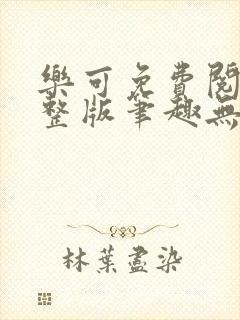 樂可免費閱
整版筆趣無
林葉盡染